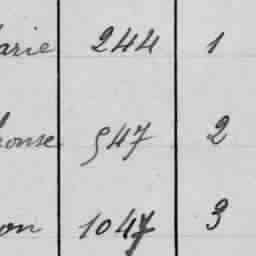 arie 244 1
honse 547 2
on 1047 3